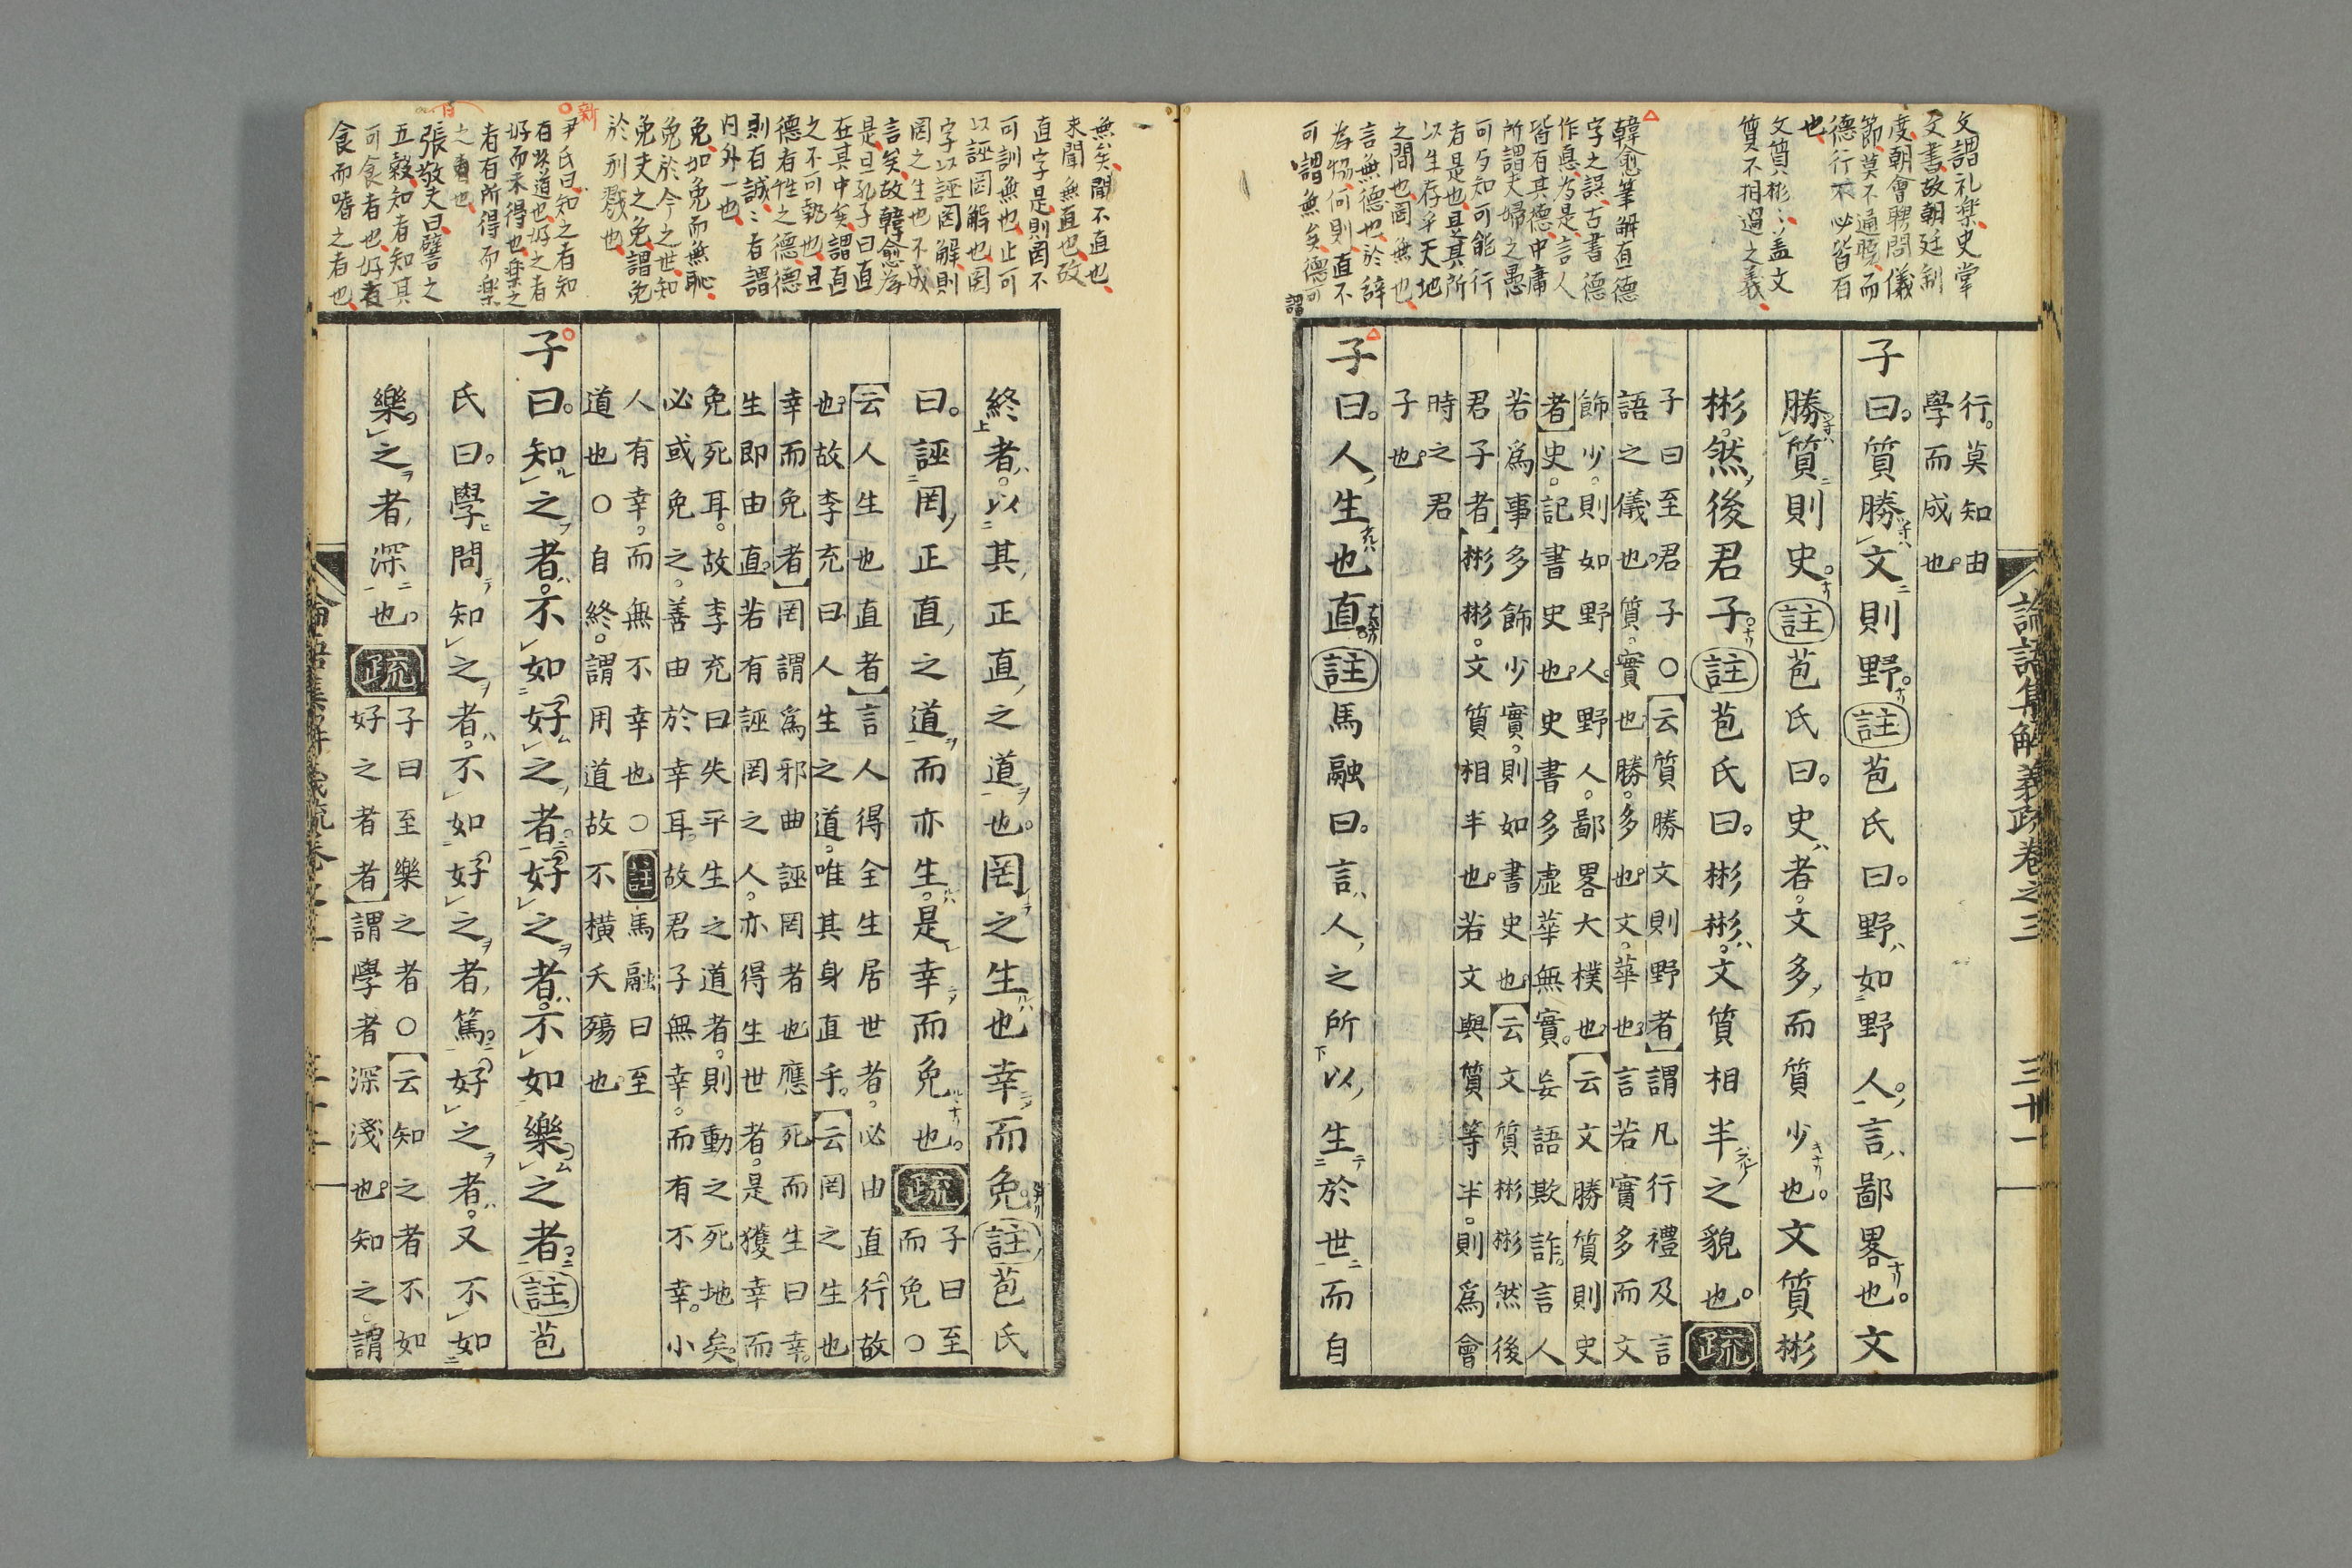 文謂礼楽史掌
文書故朝廷制
度朝會聘問儀
節莫不通曉而
德行不必皆有
也
文質彬〻盖文
質不相過之義
韓愈筆解直德
字之誤古書德
作悳為是言人
皆有其德中庸
所謂夫婦之愚
可与知可能行
者是也是其所
以生存乎天地
之間也罔無也
言無德也於辞
為協何則直不
可謂無矣德可
謂
論語集解義疏卷之三 三十一
行。莫知由
學而成也。
子曰。質勝文則野。註苞氏曰。野如野人。言鄙畧也。文
勝質則史。註苞氏曰。史者。文多而質少也。文質彬
彬。然後君子。註苞氏曰。彬彬。文質相半之貌也。疏
子曰至君子○云質勝文則野者謂凡行禮及言
語之儀也。質。實也。勝。多也。文。華也。言若實多而文
飾少。則如野人。野人。鄙畧大樸也。云文勝質則史
者史。記書史也。史書多虛華無實。妄語欺詐。言人
若為事多飾少實。則如書史也。云文質彬彬然後
君子者彬彬。文質相半也。若文與質等半。則為會
時之君
子也。
子曰。人生也直。註馬融曰。言人之所以生於世而自
無矣聞不直也
未聞無直也故
直字是則罔不
可訓無也止可
以誣罔解也罔
字以誣罔解則
罔之生也不成
言矣故韓愈為
是且孔子曰直
在其中矣謂直
之不可執也且
德者性之德德
則有誠〻者謂
内外一也
免如免而無恥
免於今之世知
免夫之免謂免
於刑戮也
新
尹氏曰知之者知
有此道也好之者
好而未得也楽之
者有所得而楽
之也
張敬夫曰譬之
五穀知者知其
可食者也好者
食而嗜之者也
終者。以其正直之道也。罔之生也幸而免。註苞氏
曰。誣罔正直之道而亦生。是幸而免也。疏子曰至
而免○
云人生也直者言人得全生居世者。必由直行故
也。故李充曰人生之道。唯其身直乎。云罔之生也
幸而免者罔謂為邪曲誣罔者也應死而生曰幸。
生即由直。若有誣罔之人。亦得生世者。是獲幸而
免死耳。故李充曰失平生之道者。則動之死地矣。
必或免之。善由於幸耳。故君子無幸。而有不幸。小
人有幸。而無不幸也○註馬融曰至
道也○自終。謂用道故不橫夭殤也
子曰。知之者。不如好之者。好之者。不如樂之者。註苞
氏曰。學問知之者。不如好之者。篤好之者。又不如
樂之者深也。疏
子曰至樂之者○云知之者不如
好之者者謂學者深淺也。知之。謂